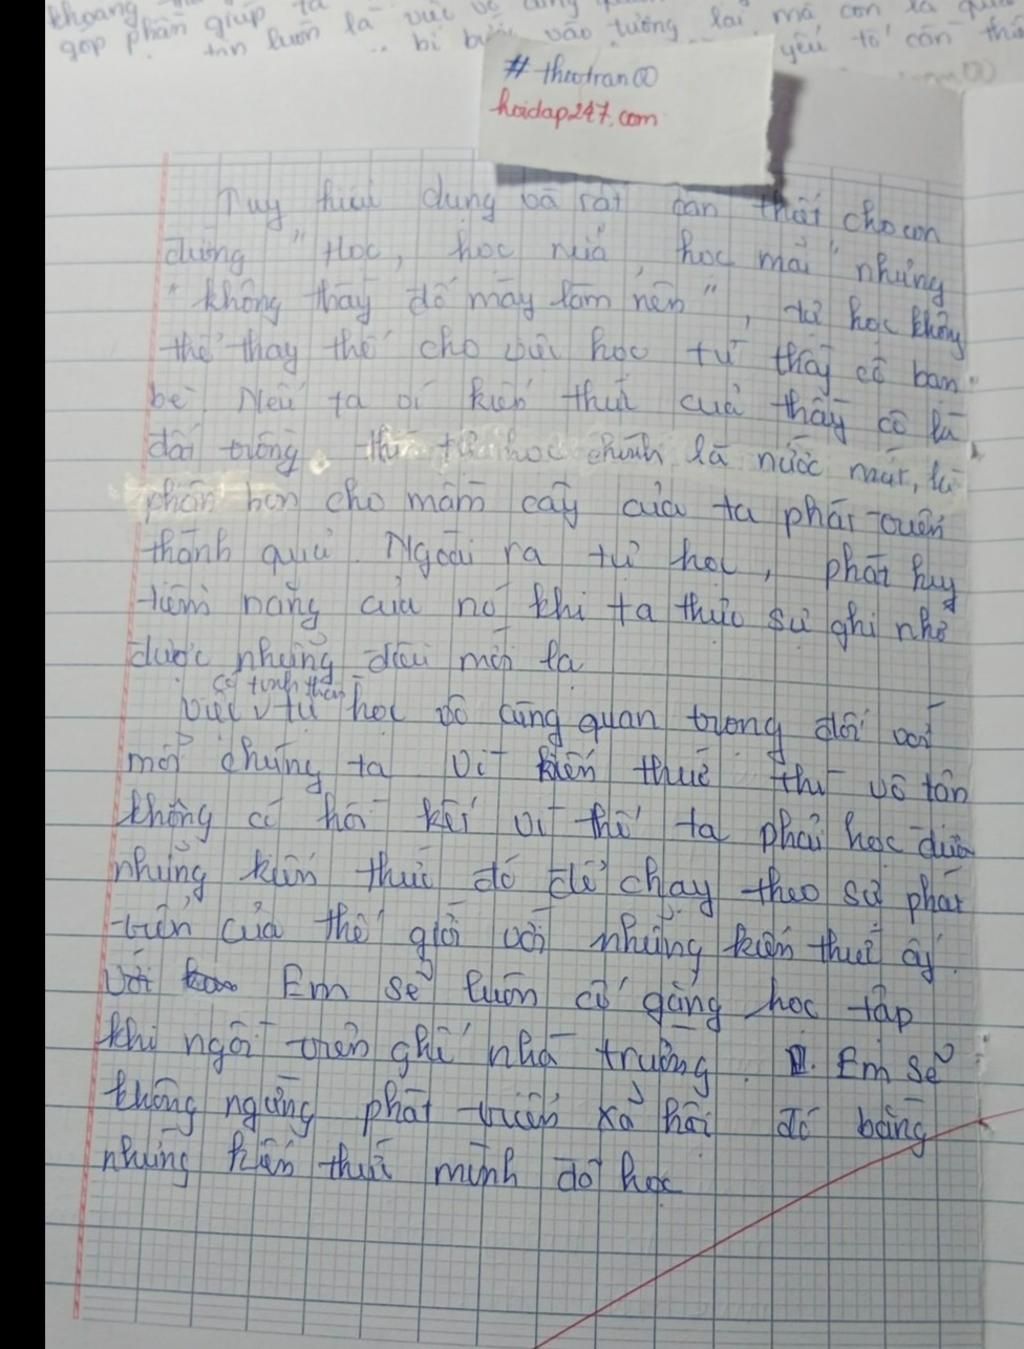 khoang
góp phần giúp ta luôn là việc vô cùng
bi bước vào tương lai mà con là
yếu tố cần thiết
# thuotran00
hoidap247.com
Tuy hữu dụng và rất cần thiết cho con
đường " Học, học nữa, học mãi" nhưng
" không thầy đố mày làm nên ", tự học không
thể thay thế cho việc học từ thầy cô bạn
bè. Nếu ta ví kiến thức của thầy cô là
đất trồng, thì tự học chính là nước mát, là
phân bón cho mầm cây của ta phát triển
thành quả. Ngoài ra tự học, phát huy
tiềm năng của nó khi ta thực sự ghi nhớ
được những điều mới lạ
có tinh thần
Việc v tự học vô cùng quan trọng đối với
mỗi chúng ta vì kiến thức thì vô tận
không có hồi kết vì thế ta phải học được
những kiến thức đó để chạy theo sự phát
triển của thế giới với những kiến thức ấy.
Em sẽ luôn cố gắng học tập
khi ngồi trên ghế nhà trường. Em sẽ
không ngừng phát triển xã hội đó bằng
những kiến thức mình đã học